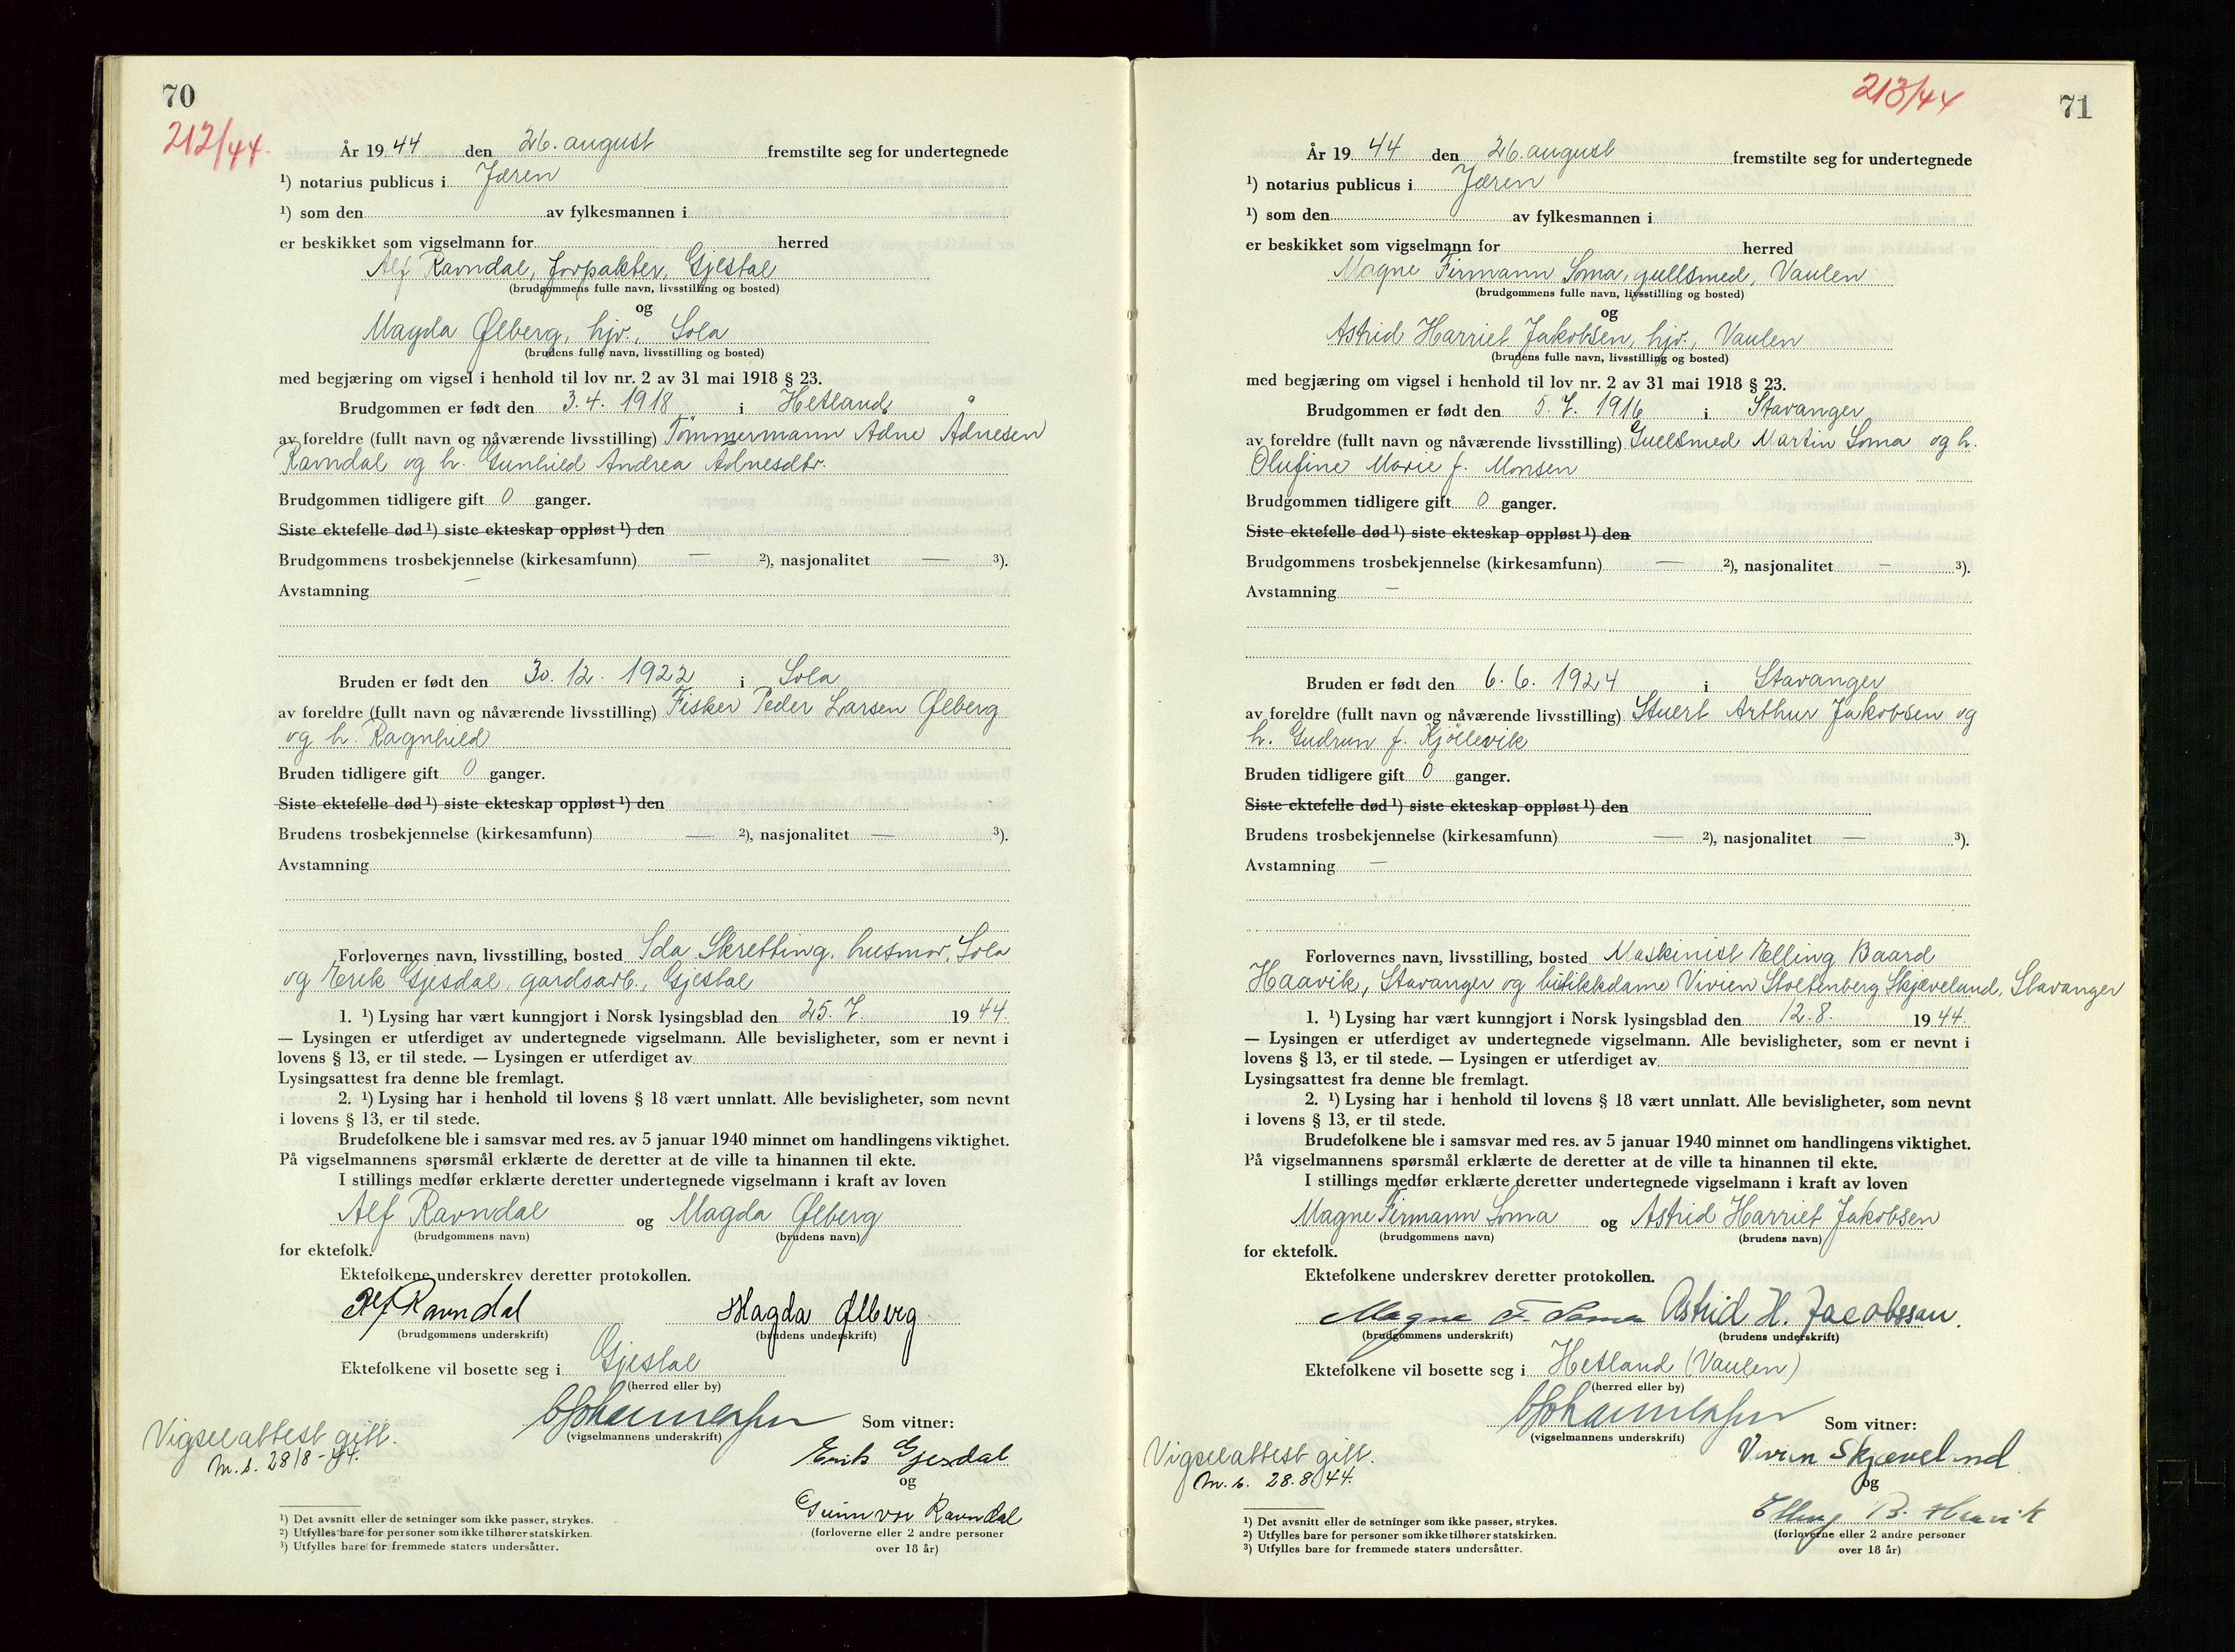 70
212/44.
År 19 44 den 26. august fremstilte seg for undertegnede
¹) notarius publicus i Jæren
¹) som den av fylkesmannen i
er beskikket som vigselmann for herred
Alf Ravndal, forpakter, Gjestal
(brudgommens fulle navn, livsstilling og bosted)
og
Magda Ølberg, hjv., Sola
(brudens fulle navn, livsstilling og bosted)
med begjæring om vigsel i henhold til lov nr. 2 av 31 mai 1918 § 23.
Brudgommen er født den 3.4. 1918 i Hetland
av foreldre (fullt navn og nåværende livsstilling) Tømmermann Adne Adnesen
Ravndal og h. Gunhild Andrea Adnesdtr.
Brudgommen tidligere gift 0 ganger.
Siste ektefelle død ¹) siste ekteskap oppløst ¹) den
Brudgommens trosbekjennelse (kirkesamfunn) — ²), nasjonalitet — ³).
Avstamning —
Bruden er født den 30. 12. 1922 i Sola
av foreldre (fullt navn og nåværende livsstilling) Fisker Peder Larsen Ølberg
og h. Ragnhild
Bruden tidligere gift 0 ganger.
Siste ektefelle død ¹) siste ekteskap oppløst ¹) den
Brudens trosbekjennelse (kirkesamfunn) — ²), nasjonalitet — ³).
Avstamning
Forlovernes navn, livsstilling, bosted Ida Skretting, husmor, Sola
og Erik Gjesdal, gardsarb., Gjestal
1. ¹) Lysing har vært kunngjort i Norsk lysingsblad den 25. 7. 19 44.
— Lysingen er utferdiget av undertegnede vigselmann. Alle bevisligheter, som er nevnt i
lovens § 13, er til stede. — Lysingen er utferdiget av
Lysingsattest fra denne ble fremlagt.
2. ¹) Lysing har i henhold til lovens § 18 vært unnlatt. Alle bevisligheter, som nevnt
i lovens § 13, er til stede.
Brudefolkene ble i samsvar med res. av 5 januar 1940 minnet om handlingens viktighet.
På vigselmannens spørsmål erklærte de deretter at de ville ta hinannen til ekte.
I stillings medfør erklærte deretter undertegnede vigselmann i kraft av loven
Alf Ravndal og Magda Ølberg
(brudgommens navn) (brudens navn)
for ektefolk.
Ektefolkene underskrev deretter protokollen.
Alf Ravndal Magda Ølberg
(brudgommens underskrift) (brudens underskrift)
Ektefolkene vil bosette seg i Gjestal
(herred eller by)
Som vitner:
(vigselmannens underskrift)
Vigselattest gitt.
28/8-44.
Erik Gjesdal
og
Gunnvor Ravndal
(forloverne eller 2 andre personer
over 18 år)
¹) Det avsnitt eller de setninger som ikke passer, strykes.
²) Utfylles bare for personer som ikke tilhører statskirken.
³) Utfylles bare for fremmede staters undersåtter.
213/44
71
År 19 44 den 26. august fremstilte seg for undertegnede
¹) notarius publicus i Jæren
¹) som den av fylkesmannen i
er beskikket som vigselmann for herred
Magne Firmann Soma, gullsmed, Vaulen
(brudgommens fulle navn, livsstilling og bosted)
og
Astrid Harriet Jakobsen, hjv., Vaulen
(brudens fulle navn, livsstilling og bosted)
med begjæring om vigsel i henhold til lov nr. 2 av 31 mai 1918 § 23.
Brudgommen er født den 5. 7. 1916 i Stavanger
av foreldre (fullt navn og nåværende livsstilling) Gullsmed Martin Soma og h.
Olufine Marie f. Monsen
Brudgommen tidligere gift 0 ganger.
Siste ektefelle død ¹) siste ekteskap oppløst ¹) den
Brudgommens trosbekjennelse (kirkesamfunn) — ²), nasjonalitet — ³).
Avstamning —
Bruden er født den 6. 6. 1924 i Stavanger
av foreldre (fullt navn og nåværende livsstilling) Stuert Arthur Jakobsen og
h. Gudrun f. Kjöllevik
Bruden tidligere gift 0 ganger.
Siste ektefelle død ¹) siste ekteskap oppløst ¹) den
Brudens trosbekjennelse (kirkesamfunn) — ²), nasjonalitet — ³).
Avstamning —
Forlovernes navn, livsstilling, bosted Maskinist Elling Baard
Haavik, Stavanger og butikkdame Vivien Stoltenberg Skjæveland, Stavanger
1. ¹) Lysing har vært kunngjort i Norsk lysingsblad den 12. 8. 19 44.
— Lysingen er utferdiget av undertegnede vigselmann. Alle bevisligheter, som er nevnt i
lovens § 13, er til stede. — Lysingen er utferdiget av
Lysingsattest fra denne ble fremlagt.
2. ¹) Lysing har i henhold til lovens § 18 vært unnlatt. Alle bevisligheter, som nevnt
i lovens § 13, er til stede.
Brudefolkene ble i samsvar med res. av 5 januar 1940 minnet om handlingens viktighet.
På vigselmannens spørsmål erklærte de deretter at de ville ta hinannen til ekte.
I stillings medfør erklærte deretter undertegnede vigselmann i kraft av loven
Magne Firmann Soma og Astrid Harriet Jakobsen
(brudgommens navn) (brudens navn)
for ektefolk.
Ektefolkene underskrev deretter protokollen.
Magne F. Soma Astrid H. Jacobsen.
(brudgommens underskrift) (brudens underskrift)
Ektefolkene vil bosette seg i Hetland (Vaulen)
(herred eller by)
Som vitner:
(vigselmannens underskrift)
Vigselattest gitt.
28.8.44.
Vivien Skjæveland
og
Elling B. Haavik
(forloverne eller 2 andre personer
over 18 år)
¹) Det avsnitt eller de setninger som ikke passer, strykes.
²) Utfylles bare for personer som ikke tilhører statskirken.
³) Utfylles bare for fremmede staters undersåtter.